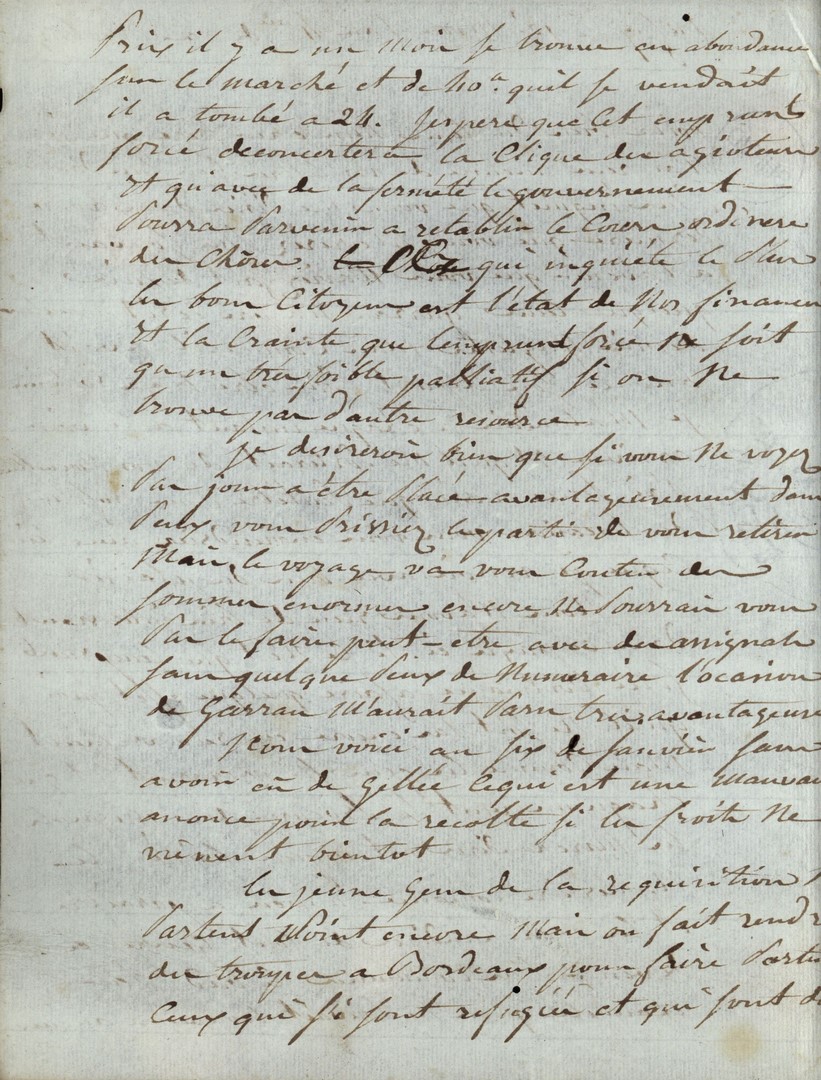 Prix il y a un mois se trouve en abondance
sur le marché et de 40.ᵗᵗ quil se vendait
il a tombé a 24. Jespere que Cet emprunt
forcé deconcertera la Clique des agioteurs
et qu'avec de la fermété le gouvernement
Pourra Parvenir a retablir le Cours ordinere
des Chôses. la Chose qui inquiéte le Plus
les bons Citoyens est l'état de Nos finances
et la Crainte que lemprunt forcé ne soit
qu'un tres foible palliatif si on Ne
trouve pas d'autre resource
je desirerois bien que si vous Ne voyez
Pas jour a être Placé avantageusement dans
Peux, vous Prissiez le parti de vous retirer
Mais, le voyage va vous Couter des
sommes enormes encore Ne Pourrais vous
Pas le faire peut-etre avec des assignats
sans quelque Peux de Numeraire l'ocasion
de Garrau M'aurait Paru tres avantageuse
Nous voici au six de Janvier sans
avoir eû de Gellée Cequi est une mauvai
anonce pour la recolte si les froits Ne
viènent bientot
les jeunes Gens de la requisition N
Partent Point encore Mais on fait rendr
des troupes a Bordeaux pour faire Partir
Ceux qui si sont refugiés et qui sont d